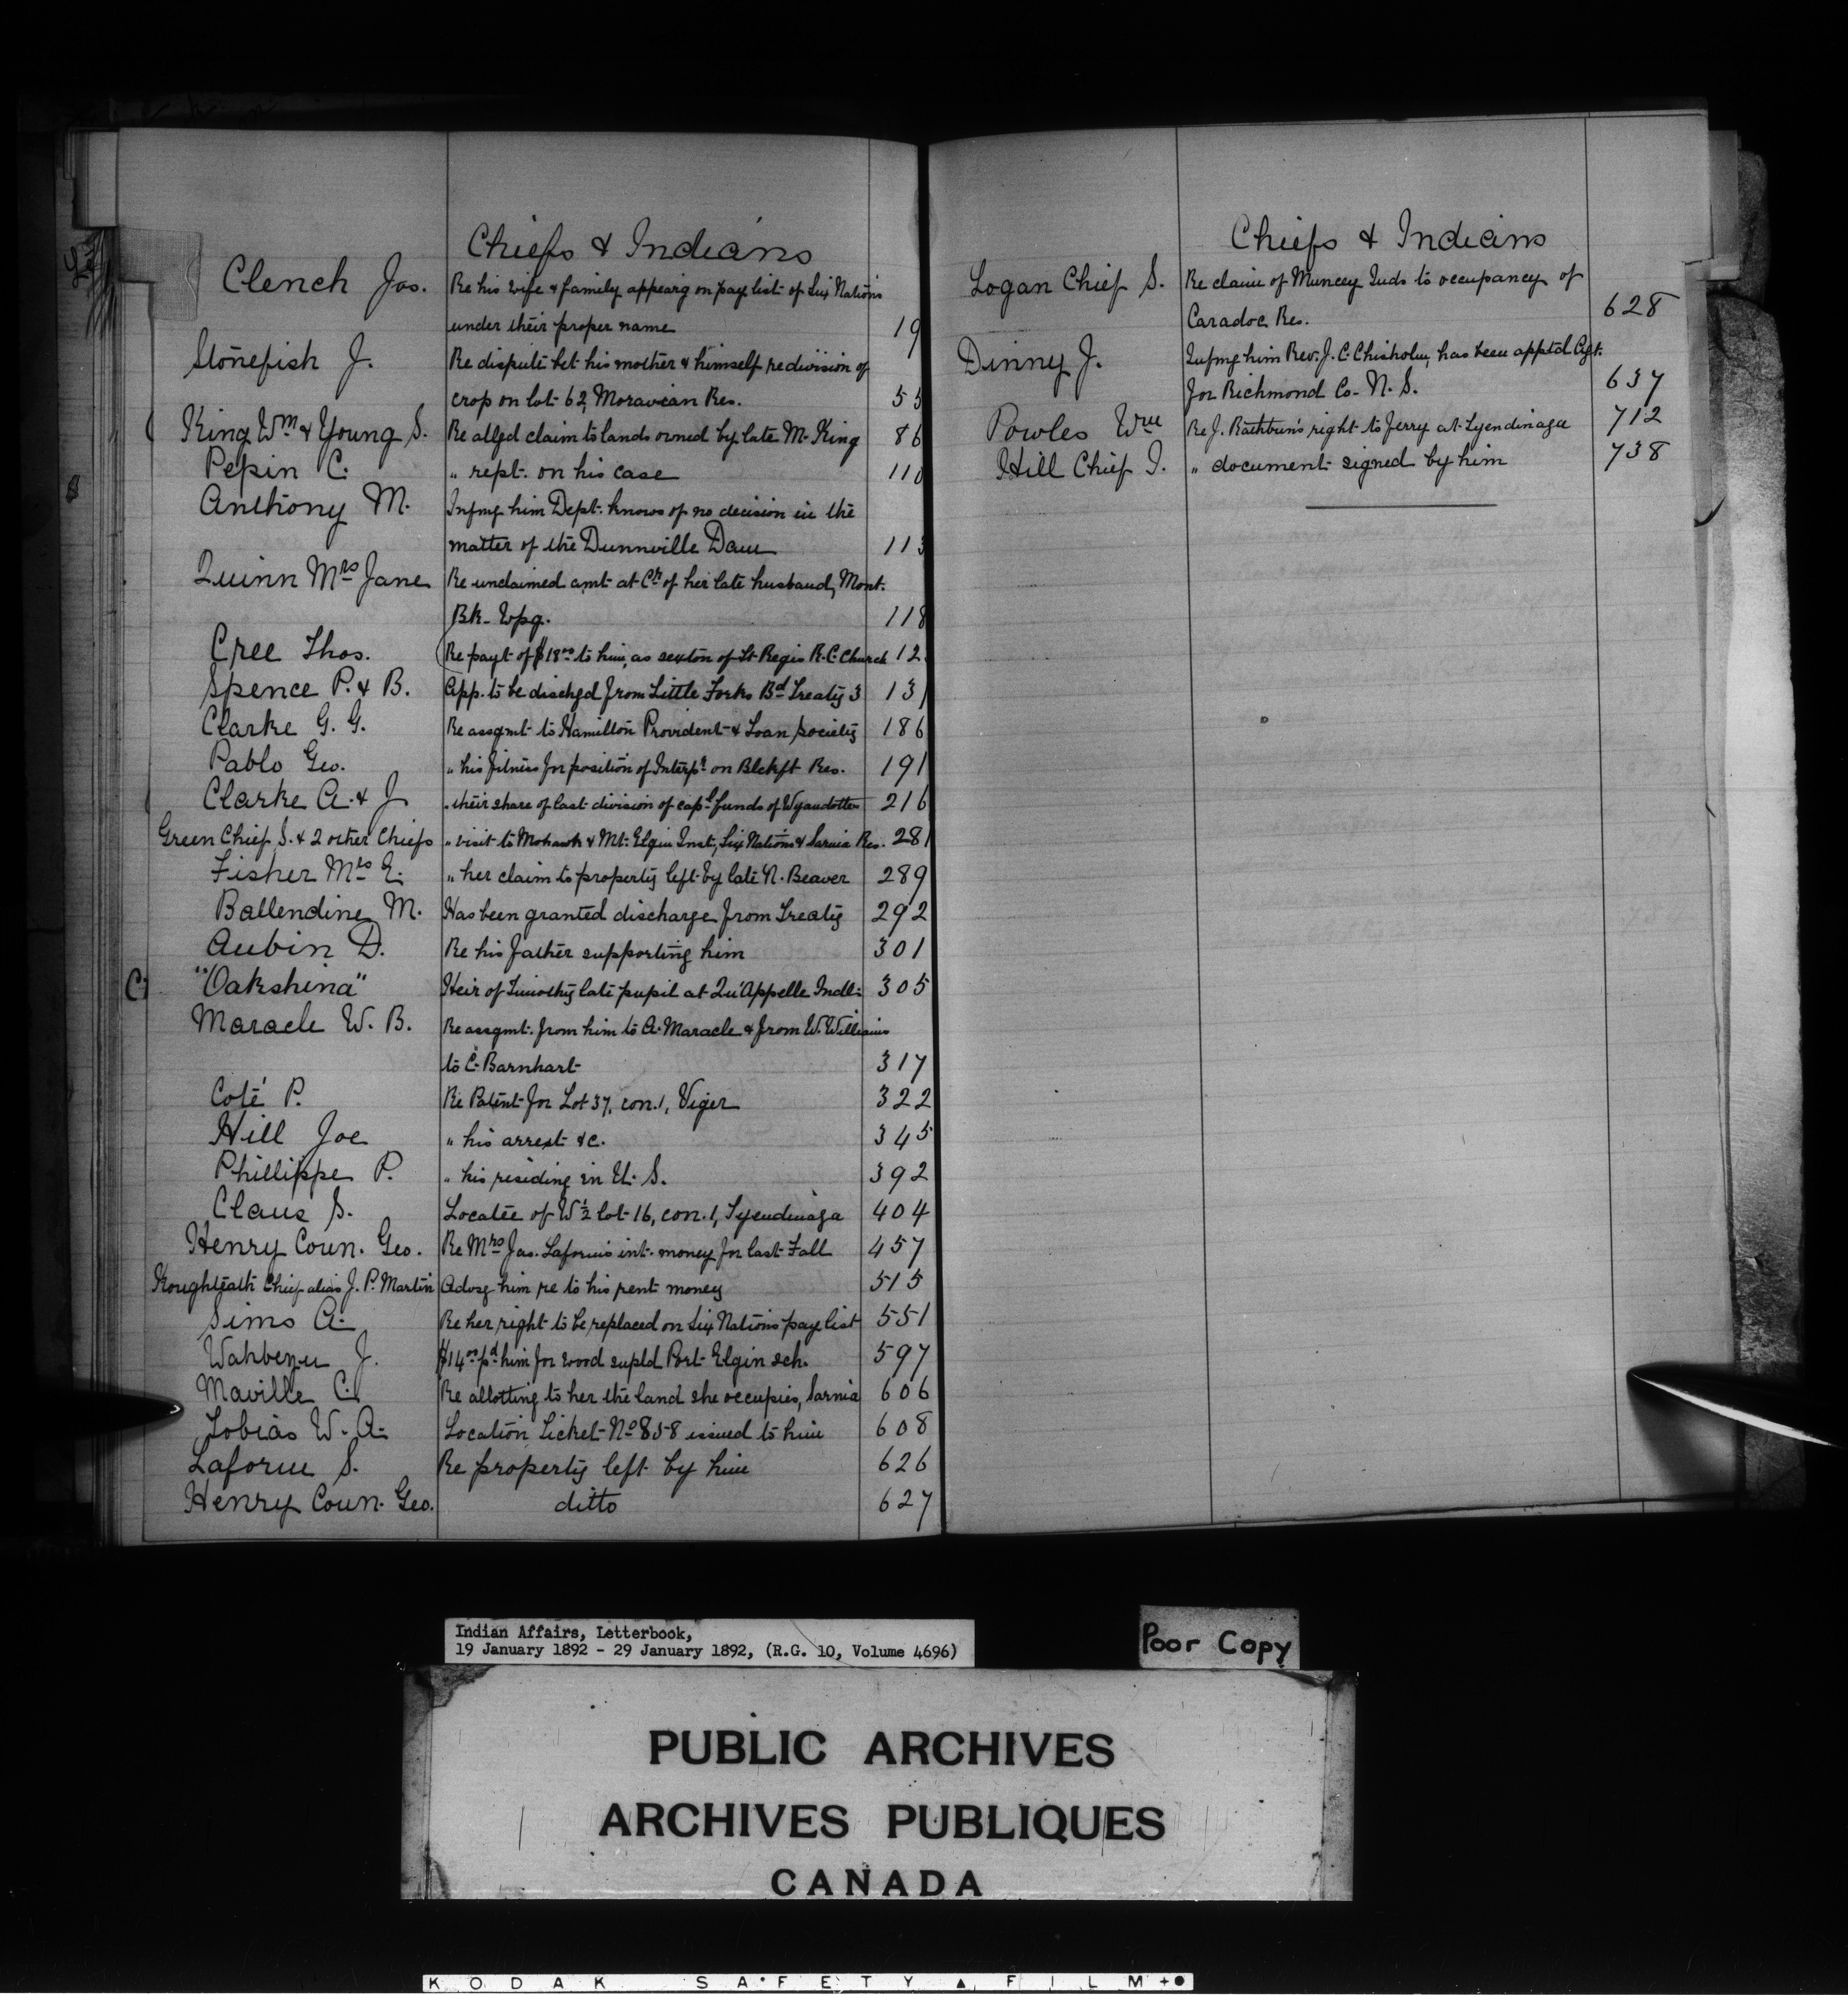 Chiefs & Indians
Clench Jas. Re his wife & family appearg on pay list of Six Nations
under their proper name 19
Stonefish J. Re dispute bet his mother & himself re division of
crop on lot 62, Moravian Res. 55
King Wm & Young S. Re allged claim to lands owned by late M. King 86
Pepin C. " rept. on his case 110
Anthony M. Infmg him Dept. knows of no decision in the
matter of the Dunnville Dam 113
Quinn Mrs Jane Re unclaimed amt at Cr of her late husband, Mont.
Bk. Wpg. 118
Cree Thos. Re payt of $18.00 to him, as sexton of St Regis R.C. Church 12
Spence P. & B. App. to be dischgd from Little Forks Bd Treaty 3 131
Clarke G. G. Re assgmt to Hamilton Provident & Loan society 186
Pablo Geo. " his fitness for position of Interpr on Blckft Res. 191
Clarke A. & J. " their share of last division of capl funds of Wyandottes 216
Green Chief S. & 2 other Chiefs " visit to Mohawk & Mt. Elgin Inst, Six Nations & Sarnia Res. 281
Fisher Mrs E. " her claim to property left by late N. Beaver 289
Ballendine M. Has been granted discharge from Treaty 292
Aubin D. Re his father supporting him 301
C "Oakshina" Heir of Timothy late pupil at Qu'Appelle Indl. 305
Maracle W. B. Re assgmt. from him to A. Maracle & from W. Williams
to C. Barnhart 317
Coté P. Re Patent for Lot 37, con. 1, Viger 322
Hill Joe " his arrest &c. 345
Phillippe P. " his residing in U. S. 392
Claus S. Locatee of W½ lot 16, con. 1, Tyendinaga 404
Henry Coun. Geo. Re Mrs Jas. Laforms int. money for last Fall 457
Chief alias J. P. Martin Advsg him re to his rent money 515
Sims A. Re her right to be replaced on Six Nations pay list 551
J. $14.00 pd him for wood supld Port Elgin sch. 597
Maville C. Re allotting to her the land she occupies, Sarnia 606
Tobias W. A. Location Ticket No 858 issued to him 608
Laform S. Re property left by him 626
Henry Coun. Geo. ditto 627
Chiefs & Indians
Logan Chief S. Re claim of Muncey Inds to occupancy of
Caradoc Res. 628
Dinny J. Infmg him Rev. J. C. Chisholm, has been apptd Agt.
for Richmond Co. N. S. 637
Powles Wm Re J. Rathbun's right to ferry at Tyendinaga 712
Hill Chief J. " document signed by him 738
Indian Affairs, Letterbook,
19 January 1892 - 29 January 1892, (R.G. 10, Volume 4696)
Poor Copy
PUBLIC ARCHIVES
ARCHIVES PUBLIQUES
CANADA
KODAK SAFETY FILM